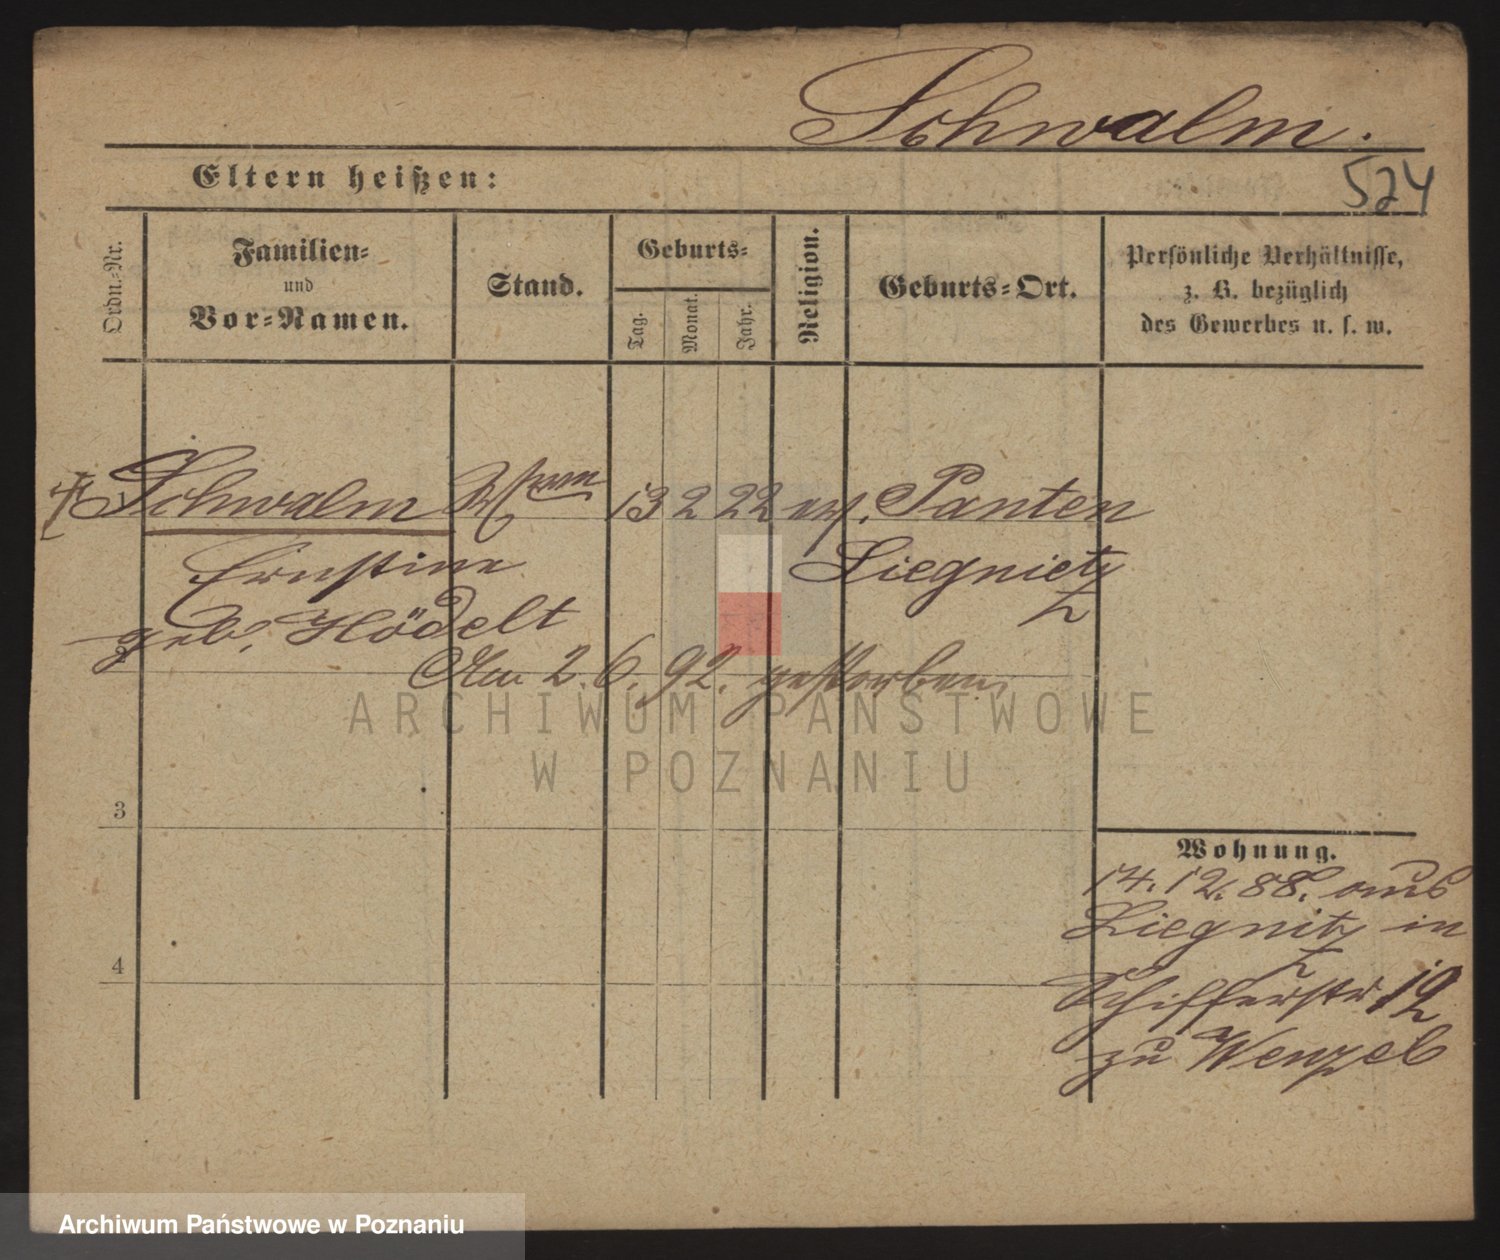 Schwalm.
Eltern heißen:
524
Ordn.-Nr.
Familien-
und
Vor-Namen.
Stand.
Geburts-
Tag.
Monat.
Jahr.
Religion.
Geburts-Ort.
Persönliche Verhältnisse,
z. B. bezüglich
des Gewerbes u. s. w.
1 Schwalm 13 2 22 ev. Panten
Ernstine Liegnietz
geb. Hödelt
2
Am 2.6.92. gestorben.
ARCHIWUM PAŃSTWOWE
W POZNANIU
3
Wohnung.
14.12.88. aus
Liegnitz in
4
Schifferstr 19
zu Wenzel
Archiwum Państwowe w Poznaniu